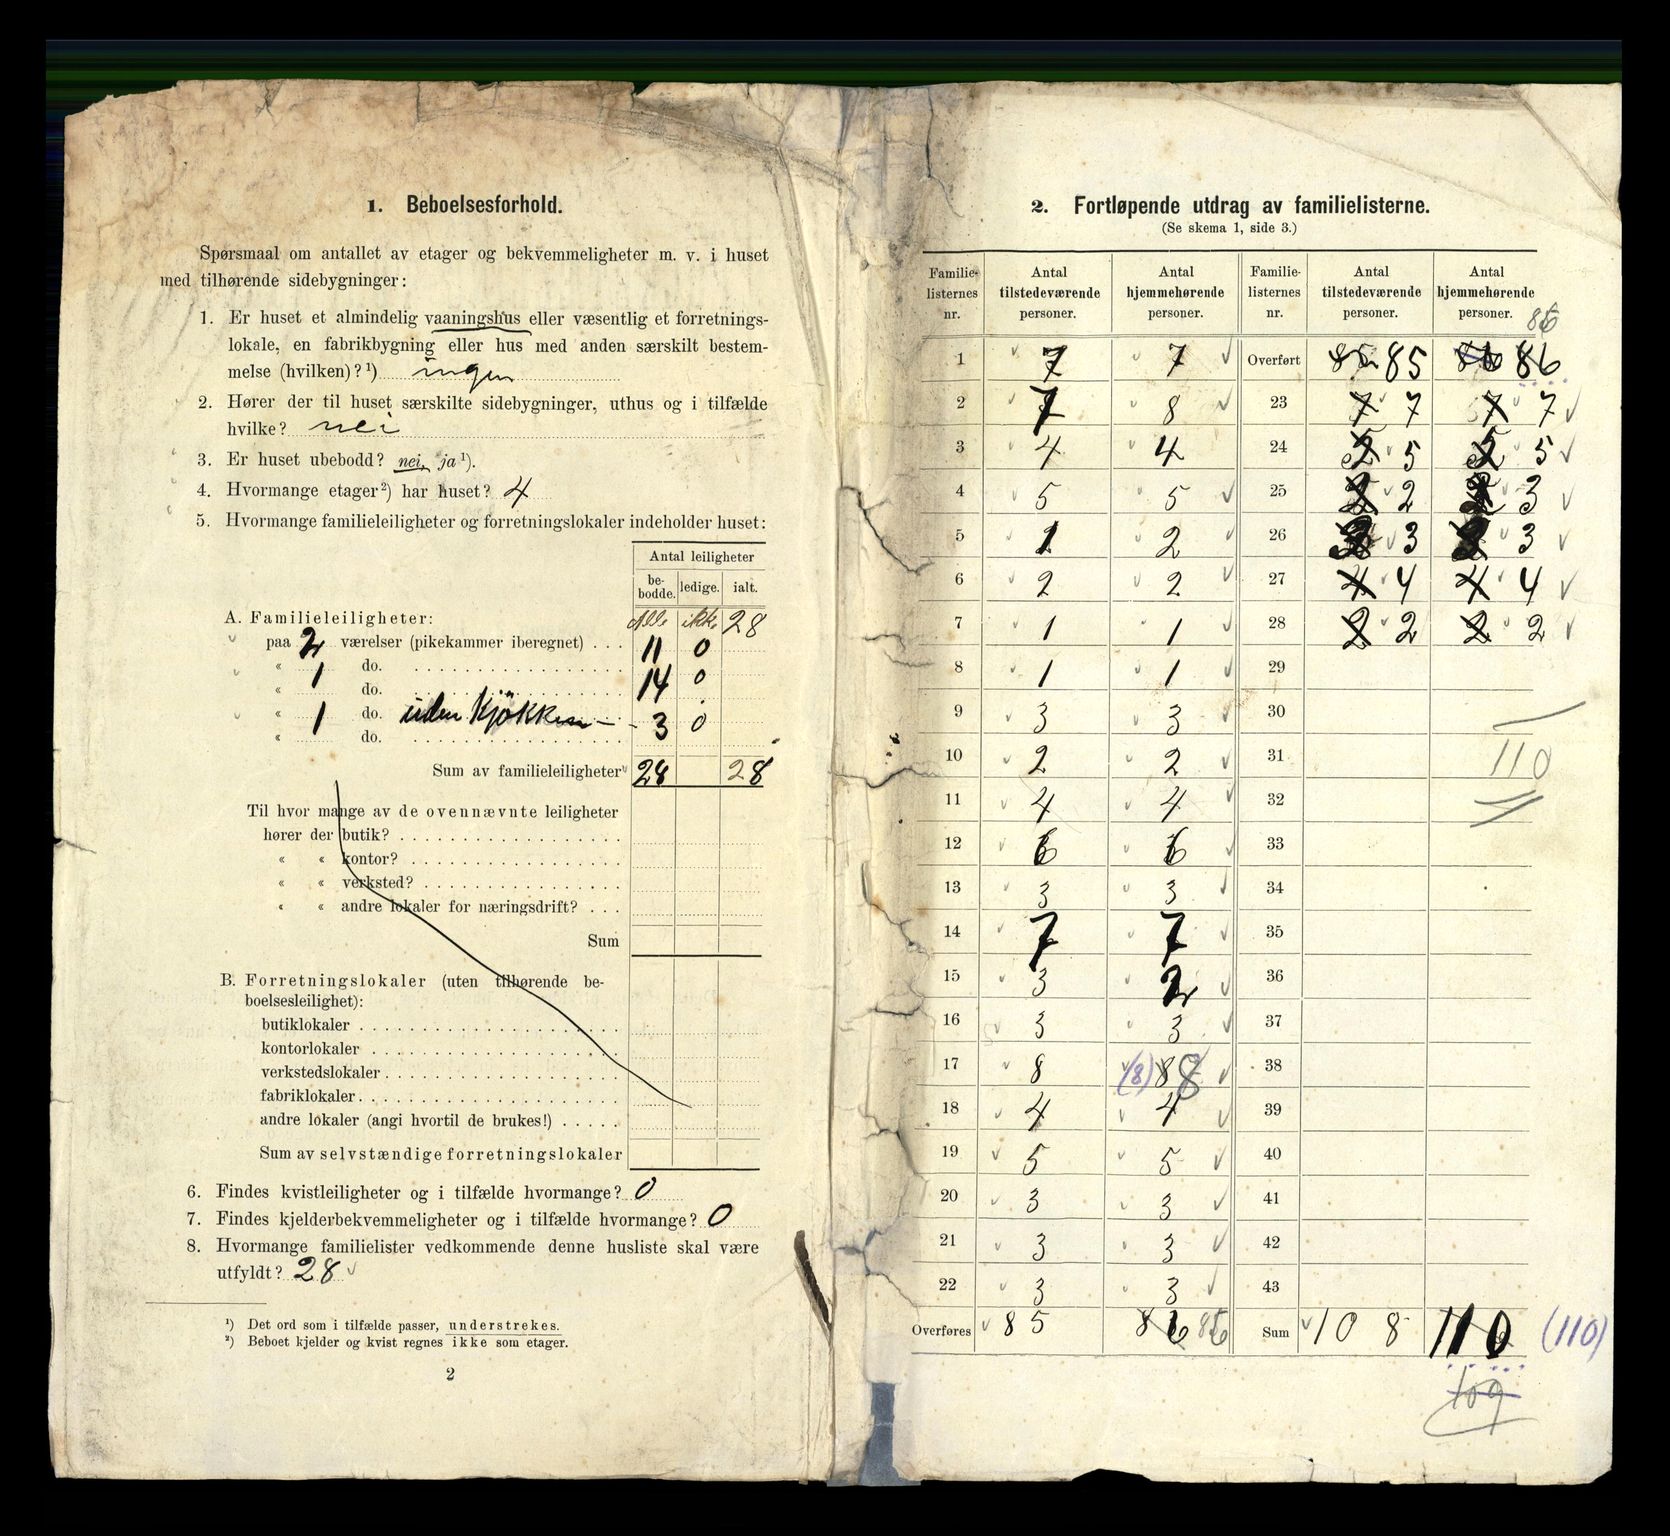 1. Beboelsesforhold.
Spørsmaal om antallet av etager og bekvemmeligheter m. v. i huset
med tilhørende sidebygninger:
1. Er huset et almindelig vaaningshus eller væsentlig et forretnings-
lokale, en fabrikbygning eller hus med anden særskilt bestem-
melse (hvilken)? ¹) ingen
2. Hører der til huset særskilte sidebygninger, uthus og i tilfælde
hvilke? nei
3. Er huset ubebodd? nei, ja ¹).
4. Hvormange etager ²) har huset? 4
5. Hvormange familieleiligheter og forretningslokaler indeholder huset:
Antal leiligheter
be-
bodde. ledige. ialt.
A. Familieleiligheter: Alle ikke 28
paa 2 værelser (pikekammer iberegnet) . . . 11 0
« 1 do. 14 0
« do.
« 1 do. uden Kjøkken — 3 0
« do.
Sum av familieleiligheter 28 28
Til hvor mange av de ovennævnte leiligheter
hører der butik?
« « kontor?
« « verksted?
« « andre lokaler for næringsdrift? . . .
Sum
B. Forretningslokaler (uten tilhørende be-
boelsesleilighet):
butiklokaler
kontorlokaler
verkstedslokaler
fabriklokaler
andre lokaler (angi hvortil de brukes!)
Sum av selvstændige forretningslokaler
6. Findes kvistleiligheter og i tilfælde hvormange? 0
7. Findes kjelderbekvemmeligheter og i tilfælde hvormange? 0
8. Hvormange familielister vedkommende denne husliste skal være
utfyldt? 28 ✓
¹) Det ord som i tilfælde passer, understrekes.
²) Beboet kjelder og kvist regnes ikke som etager.
2
2. Fortløpende utdrag av familielisterne.
(Se skema 1, side 3.)
Familie- Antal Antal Familie- Antal Antal
listernes tilstedeværende hjemmehørende listernes tilstedeværende hjemmehørende
nr. personer. personer. nr. personer. personer. 86
1 7 7 Overført 85 85 86 86
2 7 8 23 7 7 7 7
3 4 4 24 5 5 5 5
4 5 5 25 2 2 3
5 1 2 26 3 3
6 2 2 27 4 4 4 4
7 1 1 28 2 2 2 2
8 1 1 29
9 3 3 30
10 2 2 31 110
11 4 4 32
12 6 6 33
13 3 3 34
14 7 7 35
15 3 2 36
16 3 3 37
17 8 (8) 8 8 38
18 4 4 39
19 5 5 40
20 3 3 41
21 3 3 42
22 3 3 43
Overføres 85 86 86 Sum 108 110 (110)
109